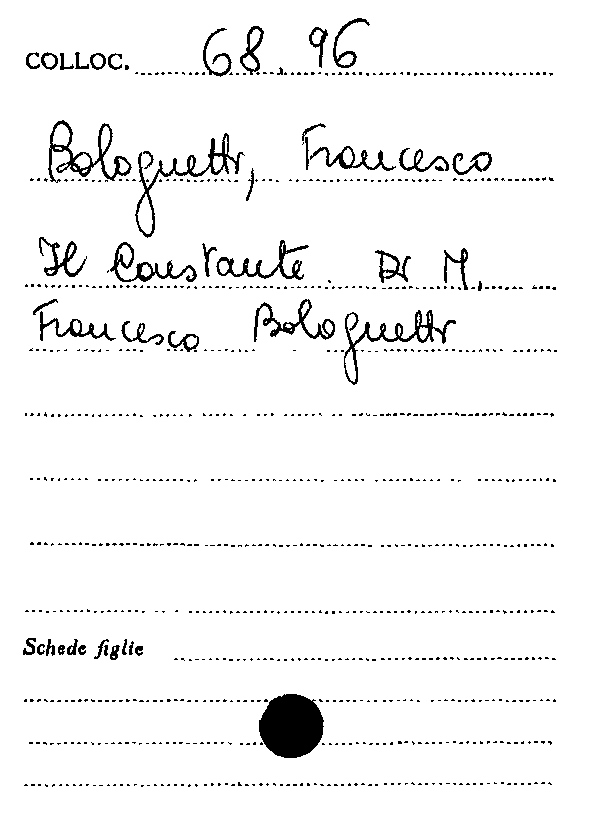 COLLOC. 68.96
Bolognetti, Francesco
Il Constante. Di M.
Francesco Bolognetti
Schede figlie